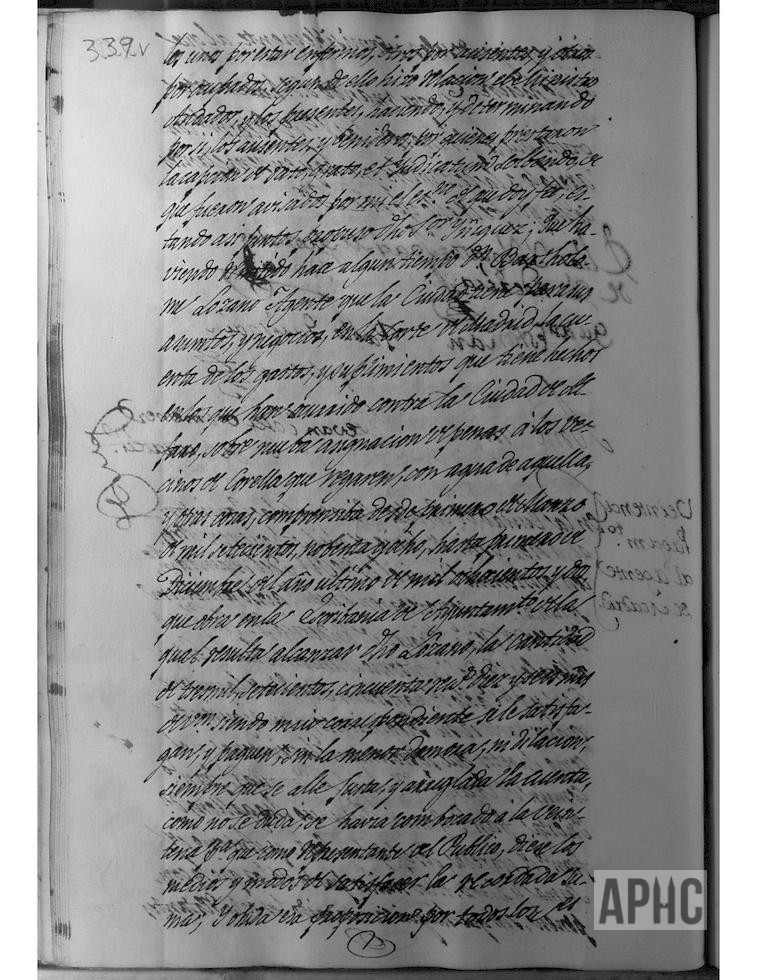 339v
los unos por estar enfermos, otros por ausentes, y otros
por ocupados, segun de ello hizo relacion el Ministro
y los presentes, haciendo, y determinando
por si, los ausentes, y venideros, por quienes prestaron
la caucion de rato, grato, et Judicatum solvendo, de
que fueron avisados por mi el esno de que doy fee, es-
tando asi juntos propuso dho Sor que ha-
viendo remitido hace algun tiempo Dn Bartholo-
me Lozano Agente que la Ciudad tiene para sus
asuntos, y negocios, en la Corte de Madrid, la cu-
enta de los gastos, y suplimientos que tiene hechos
en los que han ocurrido contra la Ciudad de Al-
faro, sobre nueba asignacion de penas á los ve-
cinos de Corella que regaren, con agua de aquella,
y otras cosas, comprensiba desde primero de Marzo
de mil setecientos, nobenta y ocho, hasta primero de
Diciembre del año ultimo de mil ochocientos y dos,
que obra en la Escribania de Ayuntamto de la
qual resulta alcanzar dho Lozano, la cantidad
de tres mil, setecientos, cincuenta rs diez y seis mrs
de von siendo mui correspondiente se le satisfa-
gan, y paguen, sin la menor demora, ni dilacion,
siempre que se alle justa, y arreglada la cuenta,
como no se duda, se havia combocado á la Vein-
tena pa que como representante del Publico, diese los
medios y modos de satisfacer la recordada su-
ma, Y oida esa proposicion por todos los
APHC